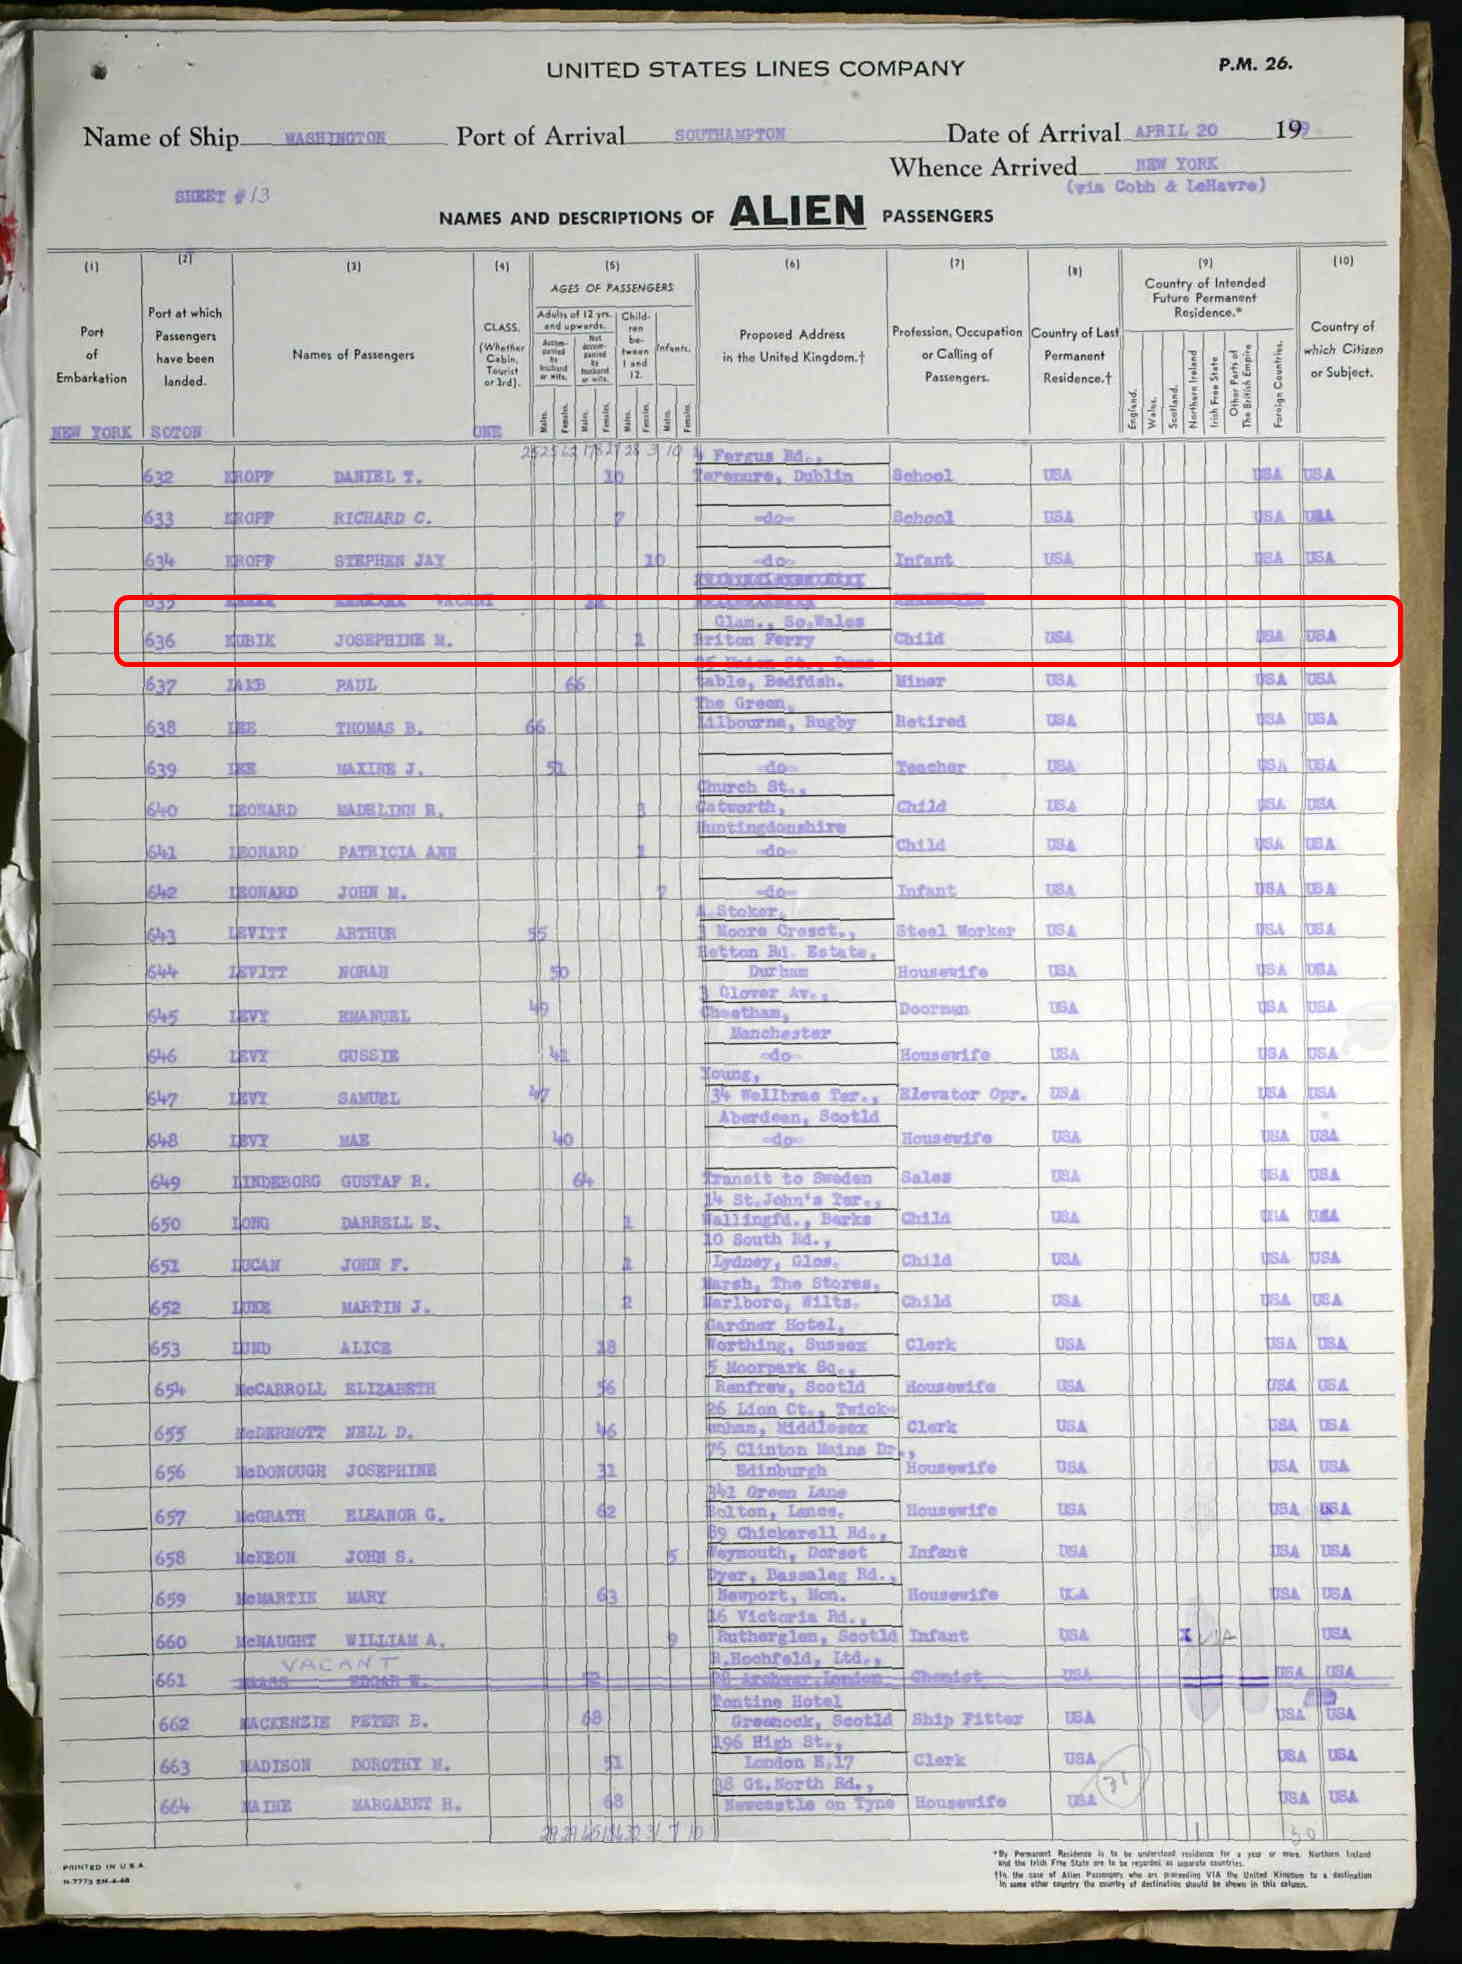 UNITED STATES LINES COMPANY
P.M. 26.
Name of Ship WASHINGTON Port of Arrival SOUTHAMPTON Date of Arrival APRIL 20 19
Whence Arrived NEW YORK
(via Cobh & LeHavre)
SHEET #13
NAMES AND DESCRIPTIONS OF ALIEN PASSENGERS
(1) (2) (3) (4) (5) (6) (7) (8) (9) (10)
Port of Embarkation
Port at which Passengers have been landed.
Names of Passengers
CLASS. (Whether Cabin, Tourist or 3rd).
AGES OF PASSENGERS
Adults of 12 yrs. and upwards.
Accompanied by husband or wife.
Not accompanied by husband or wife.
Children between 1 and 12.
Infants.
Males. Females. Males. Females. Males. Females. Males. Females.
Proposed Address in the United Kingdom.†
Profession, Occupation or Calling of Passengers.
Country of Last Permanent Residence.†
Country of Intended Future Permanent Residence.*
England. Wales. Scotland. Northern Ireland Irish Free State Other Parts of The British Empire Foreign Countries.
Country of which Citizen or Subject.
NEW YORK SOTON ONE
Fergus Rd.,
632 KROPF DANIEL T. 10 Terenure, Dublin School USA USA USA
633 KROPF RICHARD C. 7 -do- School USA USA USA
634 KROPF STEPHEN JAY 10 -do- Infant USA USA USA
635 VACANT
Glam., So.Wales
636 KUBIK JOSEPHINE M. 1 Briton Ferry Child USA USA USA
Union St., Duns-
637 PAUL 66 table, Bedfdsh. Miner USA USA USA
The Green,
638 LEE THOMAS B. 66 Kilbourne, Rugby Retired USA USA USA
639 LEE MAXINE J. 51 -do- Teacher USA USA USA
Church St.,
640 LEONARD MADELINN R. 3 Catworth, Child USA USA USA
Huntingdonshire
641 LEONARD PATRICIA ANN 1 -do- Child USA USA USA
642 LEONARD JOHN M. 7 -do- Infant USA USA USA
A.Stoker,
643 LEVITT ARTHUR 55 3 Moore Cresct., Steel Worker USA USA USA
Hetton Rd. Estate,
644 LEVITT NORAH 50 Durham Housewife USA USA USA
3 Glover Av.,
645 LEVY EMANUEL 49 Cheetham, Doorman USA USA USA
Manchester
646 LEVY GUSSIE 41 -do- Housewife USA USA USA
Young,
647 LEVY SAMUEL 47 34 Wellbrae Ter., Elevator Opr. USA USA USA
Aberdeen, Scotld
648 LEVY MAE 40 -do- Housewife USA USA USA
649 LINDEBORG GUSTAF R. 64 Transit to Sweden Sales USA USA USA
14 St.John's Ter.,
650 LONG DARRELL E. 1 Wallingfd., Berks Child USA USA USA
10 South Rd.,
651 LUCAN JOHN F. 2 Lydney, Glos. Child USA USA USA
Marsh, The Stores,
652 LUKE MARTIN J. 2 Marlboro, Wilts. Child USA USA USA
Gardner Hotel,
653 LUND ALICE 28 Worthing, Sussex Clerk USA USA USA
5 Moorpark Sq.,
654 McCARROLL ELIZABETH 56 Renfrew, Scotld Housewife USA USA USA
26 Lion Ct., Twick-
655 McDERMOTT NELL D. 46 enham, Middlesex Clerk USA USA USA
75 Clinton Mains Dr.,
656 McDONOUGH JOSEPHINE 31 Edinburgh Housewife USA USA USA
341 Green Lane
657 McGRATH ELEANOR G. 62 Bolton, Lancs. Housewife USA USA USA
89 Chickerell Rd.,
658 McKEON JOHN S. 5 Weymouth, Dorset Infant USA USA USA
Dyer, Bassaleg Rd.,
659 McMARTIN MARY 63 Newport, Mon. Housewife USA USA USA
16 Victoria Rd.,
660 McNAUGHT WILLIAM A. 9 Rutherglen, Scotld Infant USA X USA
VACANT
R.Hochfeld, Ltd.,
661 EDGAR W. 52 28 Archwar,London Chemist USA USA USA
Tontine Hotel
662 MACKENZIE PETER B. 68 Greenock, Scotld Ship Fitter USA USA USA
196 High St.,
663 MADISON DOROTHY M. 51 London E.17 Clerk USA USA USA
38 Gt.North Rd.,
664 MAINE MARGARET H. 68 Newcastle on Tyne Housewife USA USA USA
31
PRINTED IN U.S.A.
N-7773 5M-4-48
*By Permanent Residence is to be understood residence for a year or more. Northern Ireland
and the Irish Free State are to be regarded as separate countries.
†In the case of Alien Passengers who are proceeding VIA the United Kingdom to a destination
in some other country the country of destination should be shown in this column.